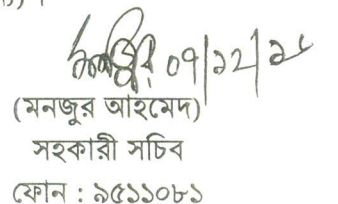 ০৭/১২/১৮
(মনজুর আহমেদ)
সহকারী সচিব
ফোন : ৯৫১১০৮১